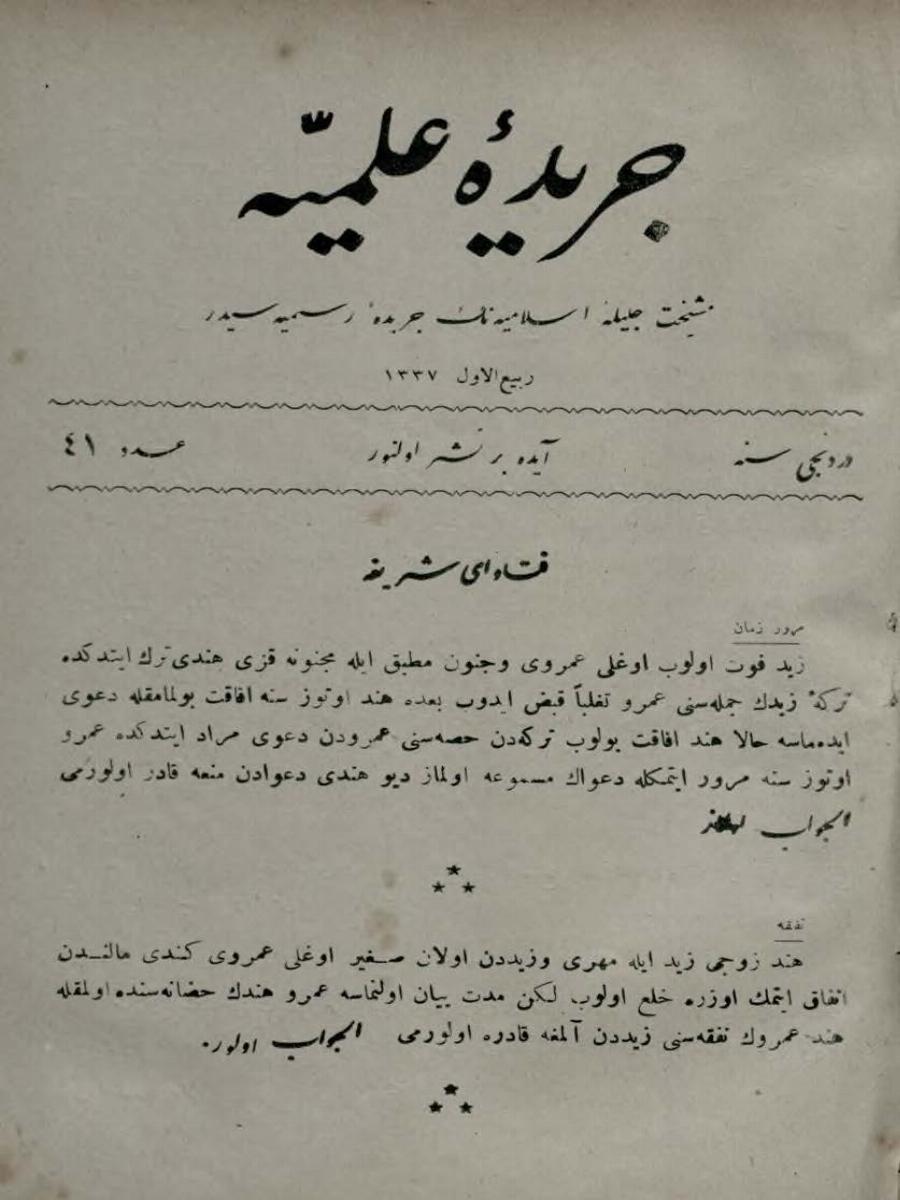 جریدهٔ علمیّه
مشیخت جلیلهٔ اسلامیه‌نك جریدهٔ رسمیه‌سیدر
ربیع‌الاول ١٣٣٧
دردنجی سنه آیده بر نشر اولنور عدد ٤١
فتاوای شریفه
مرور زمان
زید فوت اولوب اوغلی عمروی وجنون مطبق ایله مجنونه قزی هندی ترك ایتدكده
تركهٔ زیدك جمله‌سنی عمرو تغلباً قبض ایدوب بعده هند اوتوز سنه افاقت بولمامقله دعوی
ایده‌ماسه حالا هند افاقت بولوب تركه‌دن حصه‌سنی عمرودن دعوی مراد ایتدكده عمرو
اوتوز سنه مرور ایتمكله دعواك مسموعه اولماز دیو هندی دعوادن منعه قادر اولورمی
الجواب اولماز
نفقه
هند زوجی زید ایله مهری وزیددن اولان صغیر اوغلی عمروی كندی مالندن
انفاق ایتمك اوزره خلع اولوب لكن مدت بیان اولنماسه عمرو هندك حضانه‌سنده اولمقله
هند عمروك نفقه‌سنی زیددن آلمغه قادره اولورمی الجواب اولور.